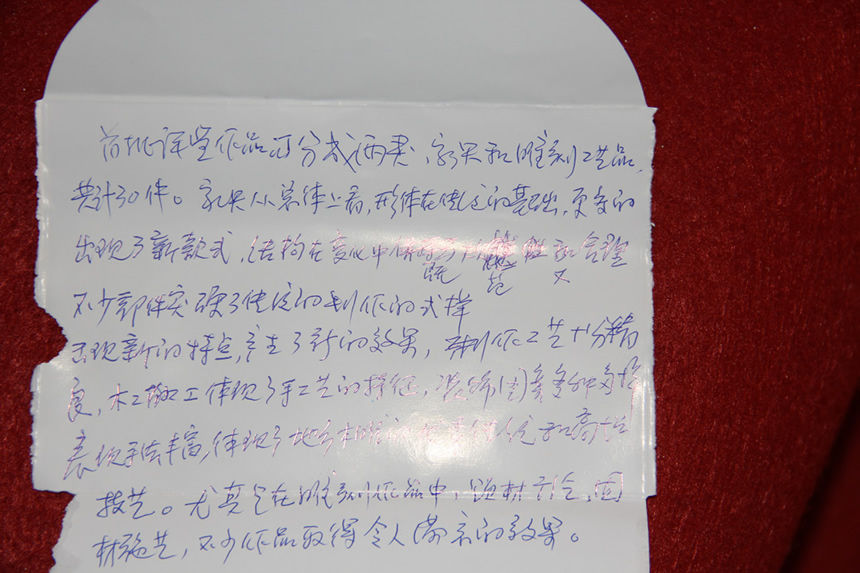 首批评鉴作品可分成两类，家具和雕刻工艺品，
共计30件。家具从总体上看，形体在传统的基础，更多的
出现了新款式，结构在变化中 既 范 和合理
不少部件突破了传统的制作的式样
出现新的特点，产生了新的效果，制作工艺十分精
度，木工雕工体现了手工艺的特征，装饰图案多种多样
表现手法丰富，体现了地方 传统和高超
技艺。尤其是在雕刻作品中，题材 ，因
材施艺，不少作品取得令人满意的效果。